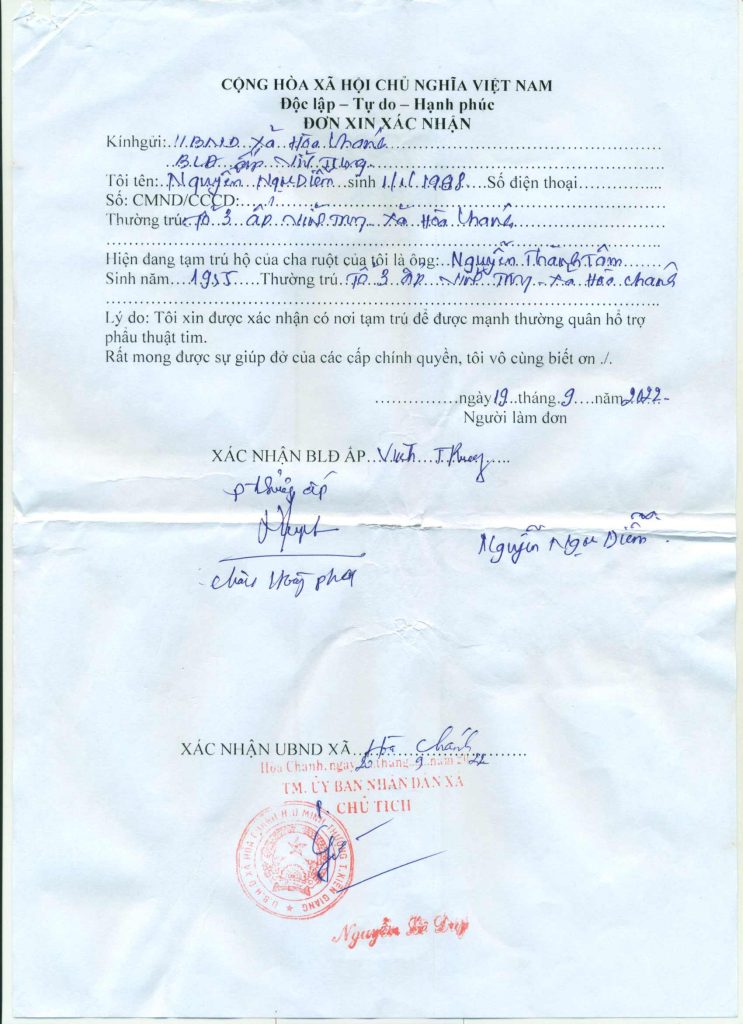 CỘNG HÒA XÃ HỘI CHỦ NGHĨA VIỆT NAM
Độc lập – Tự do – Hạnh phúc
ĐƠN XIN XÁC NHẬN
Kínhgửi: U.BND Xã Hòa Chánh
BLĐ ấp
Tôi tên: Nguyễn Ngọc Diễm sinh 1/1/1988 Số điện thoại
Số: CMND/CCCD:
Thường trú: Tổ 3 ấp Xã Hòa Chánh
Hiện đang tạm trú hộ của cha ruột của tôi là ông: Nguyễn Thành Tâm
Sinh năm 1955 Thường trú Tổ 3 ấp Xã Hòa Chánh
Lý do: Tôi xin được xác nhận có nơi tạm trú để được mạnh thường quân hổ trợ
phẩu thuật tim.
Rất mong được sự giúp đở của các cấp chính quyền, tôi vô cùng biết ơn ./.
ngày 19 tháng 9 năm 2022
Người làm đơn
XÁC NHẬN BLĐ ẤP Vĩnh Trung
Trưởng ấp
Nguyễn Ngọc Diễm
XÁC NHẬN UBND XÃ Hòa Chánh
Hòa Chánh, ngày 20 tháng 9 năm 2022
TM. ỦY BAN NHÂN DÂN XÃ
CHỦ TỊCH
U.B.N.D XÃ HÒA CHÁNH H.U MINH THƯỢNG T.KIÊN GIANG
Nguyễn Duy